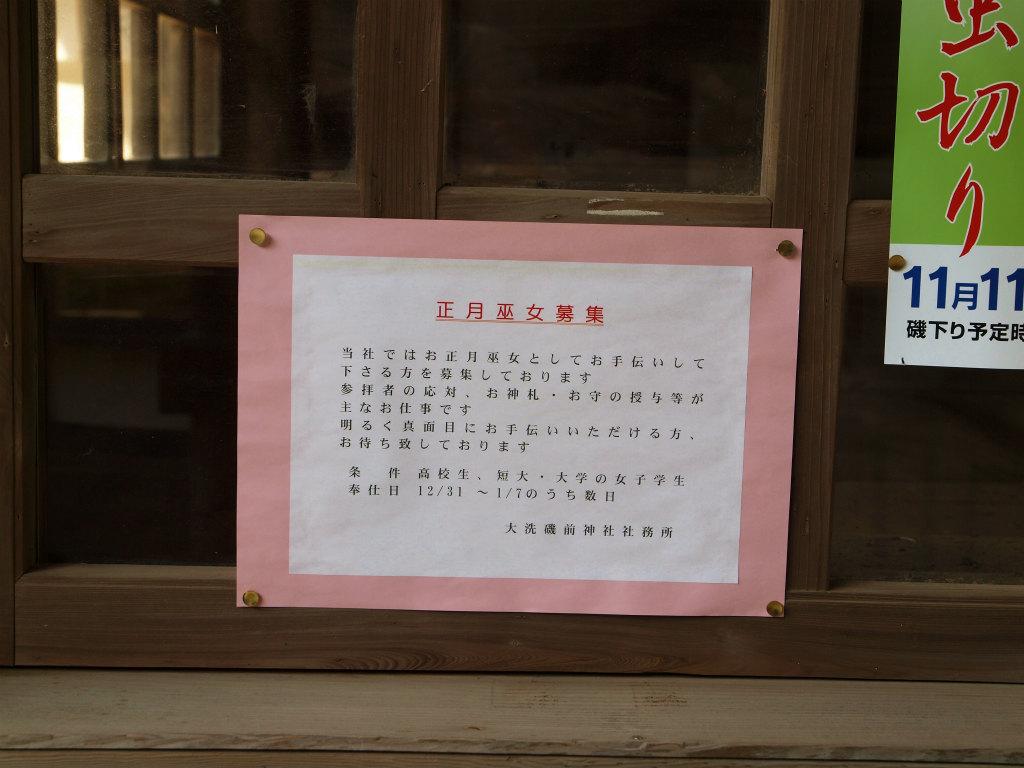 正月巫女募集
当社ではお正月巫女としてお手伝いして
下さる方を募集しております
参拝者の応対、お神札・お守の授与等が
主なお仕事です
明るく真面目にお手伝いいただける方、
お待ち致しております
条　件　高校生、短大・大学の女子学生
奉仕日　12/31　～1/7のうち数日
大洗磯前神社社務所
虫切り
11月11
磯下り予定時